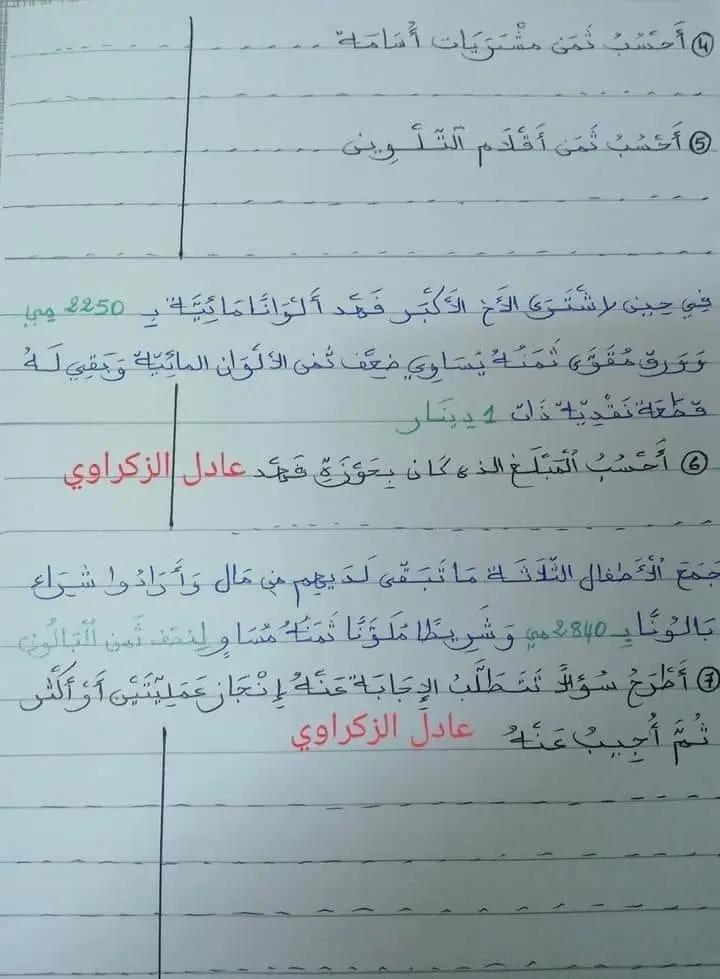 ④ أَحْسُبُ ثَمَنَ مُشْتَرَيَاتِ أُسَامَةَ
⑤ أَحْسُبُ ثَمَنَ أَقْلَامِ التَّلْوِينِ
فِي حِينِ اشْتَرَى الأَخُ الأَكْبَرُ فَهْد أَلْوَانًا مَائِيَّةً بِـ 2250 مي
وَوَرَق مُقَوَّى ثَمَنُهُ يُسَاوِي ضِعْفَ ثَمَنِ الأَلْوَانِ المائِيَّةِ وَبَقِيَ لَهُ
قِطْعَةً نَقْدِيَّةً ذَاتُ 1 دِينَار
⑥ أَحْسُبُ الْمَبْلَغَ الذي كَانَ بِحَوْزَةِ فَهْد عادل الزكراوي
جَمَعَ الأَطْفَالُ الثَّلَاثَةُ مَا تَبَقَّى لَدَيْهِمْ مِنْ مَال وَأَرَادُوا شِرَاءَ
بَالُونًا بِـ 2840 مي وَشَرِيطًا مُلَوَّنًا ثَمَنُهُ مُسَاوٍ لِنِصْفِ ثَمَنِ الْبَالُونِ
⑦ أَطْرَحُ سُؤَالًا تَتَطَلَّبُ الإِجَابَةُ عَنْهُ إِنْجَازَ عَمَلِيَّتَيْنِ أَوْ أَكْثَرَ
ثُمَّ أُجِيبُ عَنْهُ عادل الزكراوي